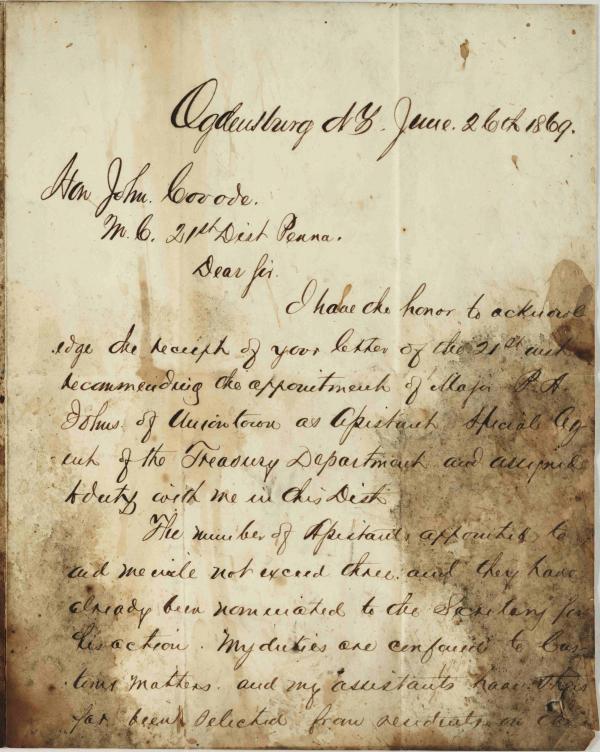 Ogdensburg NY. June. 26th 1869.
Hon John. Covode.
M. C. 21st Dist Penna.
Dear Sir.
I have the honor to acknowl
edge the receipt of your letter of the 21st inst
recommending the appointment of Major P. A.
Johns. of Uniontown as Assistant Special Ag
ent of the Treasury Department and assigned
to duty with me in this Dist
The number of Assistants appointed to
aid me will not exceed three. and they have
already been nominated to the Secretary for
his action. My duties are confined to Cus
toms matters. and my assistants have thus
far been selected from residents on